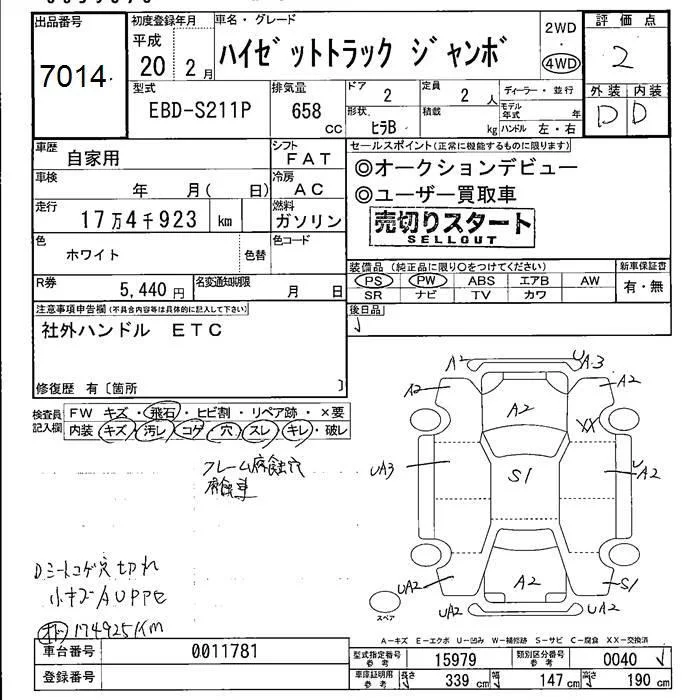 出品番号
7014
初度登録年月
平成
20 2月
車名・グレード
ハイゼットトラック ジャンボ
2WD
・
4WD
評価点
2
外装 内装
D D
型式
EBD-S211P
排気量
658
cc
ドア
2
定員
2 人
ディーラー・並行
モデル年式 年
形状
ヒラB
積載
kg
ハンドル 左・右
車歴
自家用
シフト
FAT
車検
年 月( 日)
冷房
AC
走行
17万4千923 km
燃料
ガソリン
色
ホワイト
色替
色コード
R券
5,440円
名変通知期限
月 日
セールスポイント(正常に機能するものに限ります)
◎オークションデビュー
◎ユーザー買取車
売切りスタート
SELLOUT
装備品(純正品に限り○をつけてください)
新車保証書
PS PW ABS エアB AW
有・無
SR ナビ TV カワ
後日品
注意事項申告欄(不具合内容等は具体的に記入して下さい)
社外ハンドル ETC
修復歴 有〔箇所 〕
検査員記入欄
FW キズ・飛石・ヒビ割・リペア跡・×要
内装 キズ・汚レ・コゲ・穴・スレ・キレ・破レ
フレーム腐蝕穴
腐蝕車
Dシートコゲ穴 切れ
小キズAUPPE
174925KM
A2 UA3
A2 A2
A2
XX
UA3 S1 UA2
UA2 A2 S1
UA2 UA2
スペア
A-キズ E-エクボ U-凹み W-補修跡 S-サビ C-腐食 XX-交換済
車台番号
0011781
登録番号
型式指定番号
参考
15979
類別区分番号
参考
0040
車庫証明用
参考
長さ
339 cm
幅
147 cm
高さ
190 cm